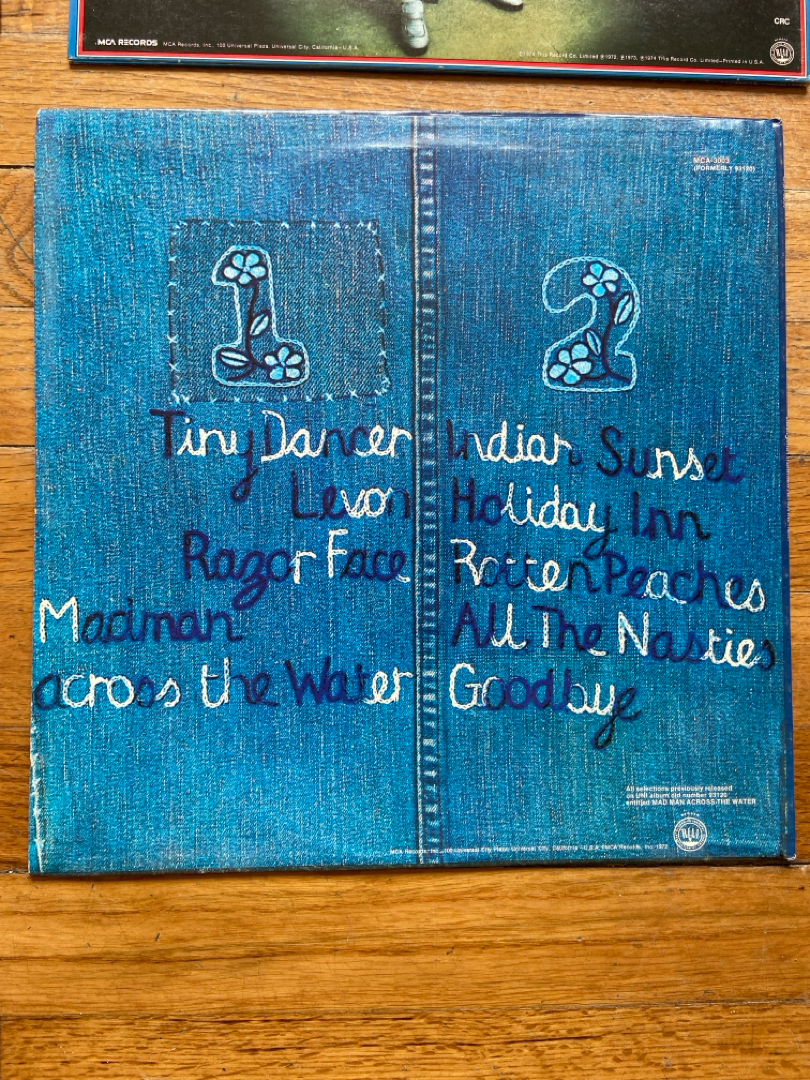 MCA RECORDS MCA Records, Inc., 100 Universal Plaza, Universal City, California—U.S.A.
CRC
1974 This Record Co. Limited ℗1972, ℗1973, ℗1974 This Record Co. Limited—Printed in U.S.A.
MCA-3003
(FORMERLY 93120)
1
2
Tiny Dancer
Levon
Razor Face
Madman
across the Water
Indian Sunset
Holiday Inn
Rotten Peaches
All The Nasties
Goodbye
All selections previously released
on UNI album old number 93120
entitled MAD MAN ACROSS THE WATER
MCA Records, Inc., 100 Universal City Plaza, Universal City, California - U.S.A. ℗MCA Records, Inc. 1972